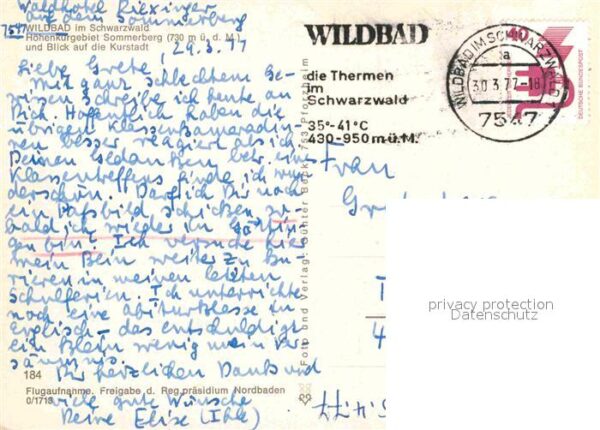 Waldhotel Riexinger
auf dem Sommerberg
7547 WILDBAD im Schwarzwald
Höhenkurgebiet Sommerberg (730 m ü. d. M.)
und Blick auf die Kurstadt
29.3.77
Liebe Grete,
Mit ganz schlechtem Ge-
wissen schreibe ich heute an
Dich. Hoffentlich haben die
übrigen Klassenkameradin-
nen besser reagiert als ich.
Deinen Gedanken betr. ein
Klassentreffens finde ich wun-
derschön. Darf ich Dir noch
ein Paßbild schicken, so-
bald ich wieder in Göttin-
gen bin? Ich versuche hier
mein Bein weiter zu ku-
rieren in meinen letzten
Schulferien. Ich unterrichte
noch eine Abiturklasse in
Englisch – das entschuldigt
ein klein wenig mein Ver-
säumnis.
Dir herzlichen Dank und
viele gute Wünsche
Deine Elise (Ihle)
184
Flugaufnahme. Freigabe d. Reg.präsidium Nordbaden
0/1713
Foto und Verlag: Günter Bock, 753 Pforzheim
WILDBAD
die Thermen
im
Schwarzwald
35°-41°C
430-950m ü.M.
WILDBAD IM SCHWARZWALD 1
a
30.3.77-18
7547
DEUTSCHE BUNDESPOST
Frau
privacy protection
Datenschutz